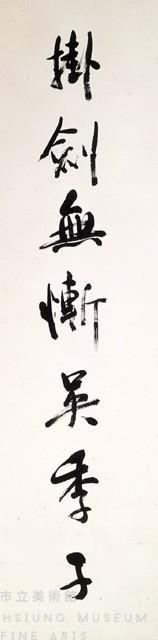 掛劍無慚吳季子
市立美術館
HSIUNG MUSEUM
FINE ARTS